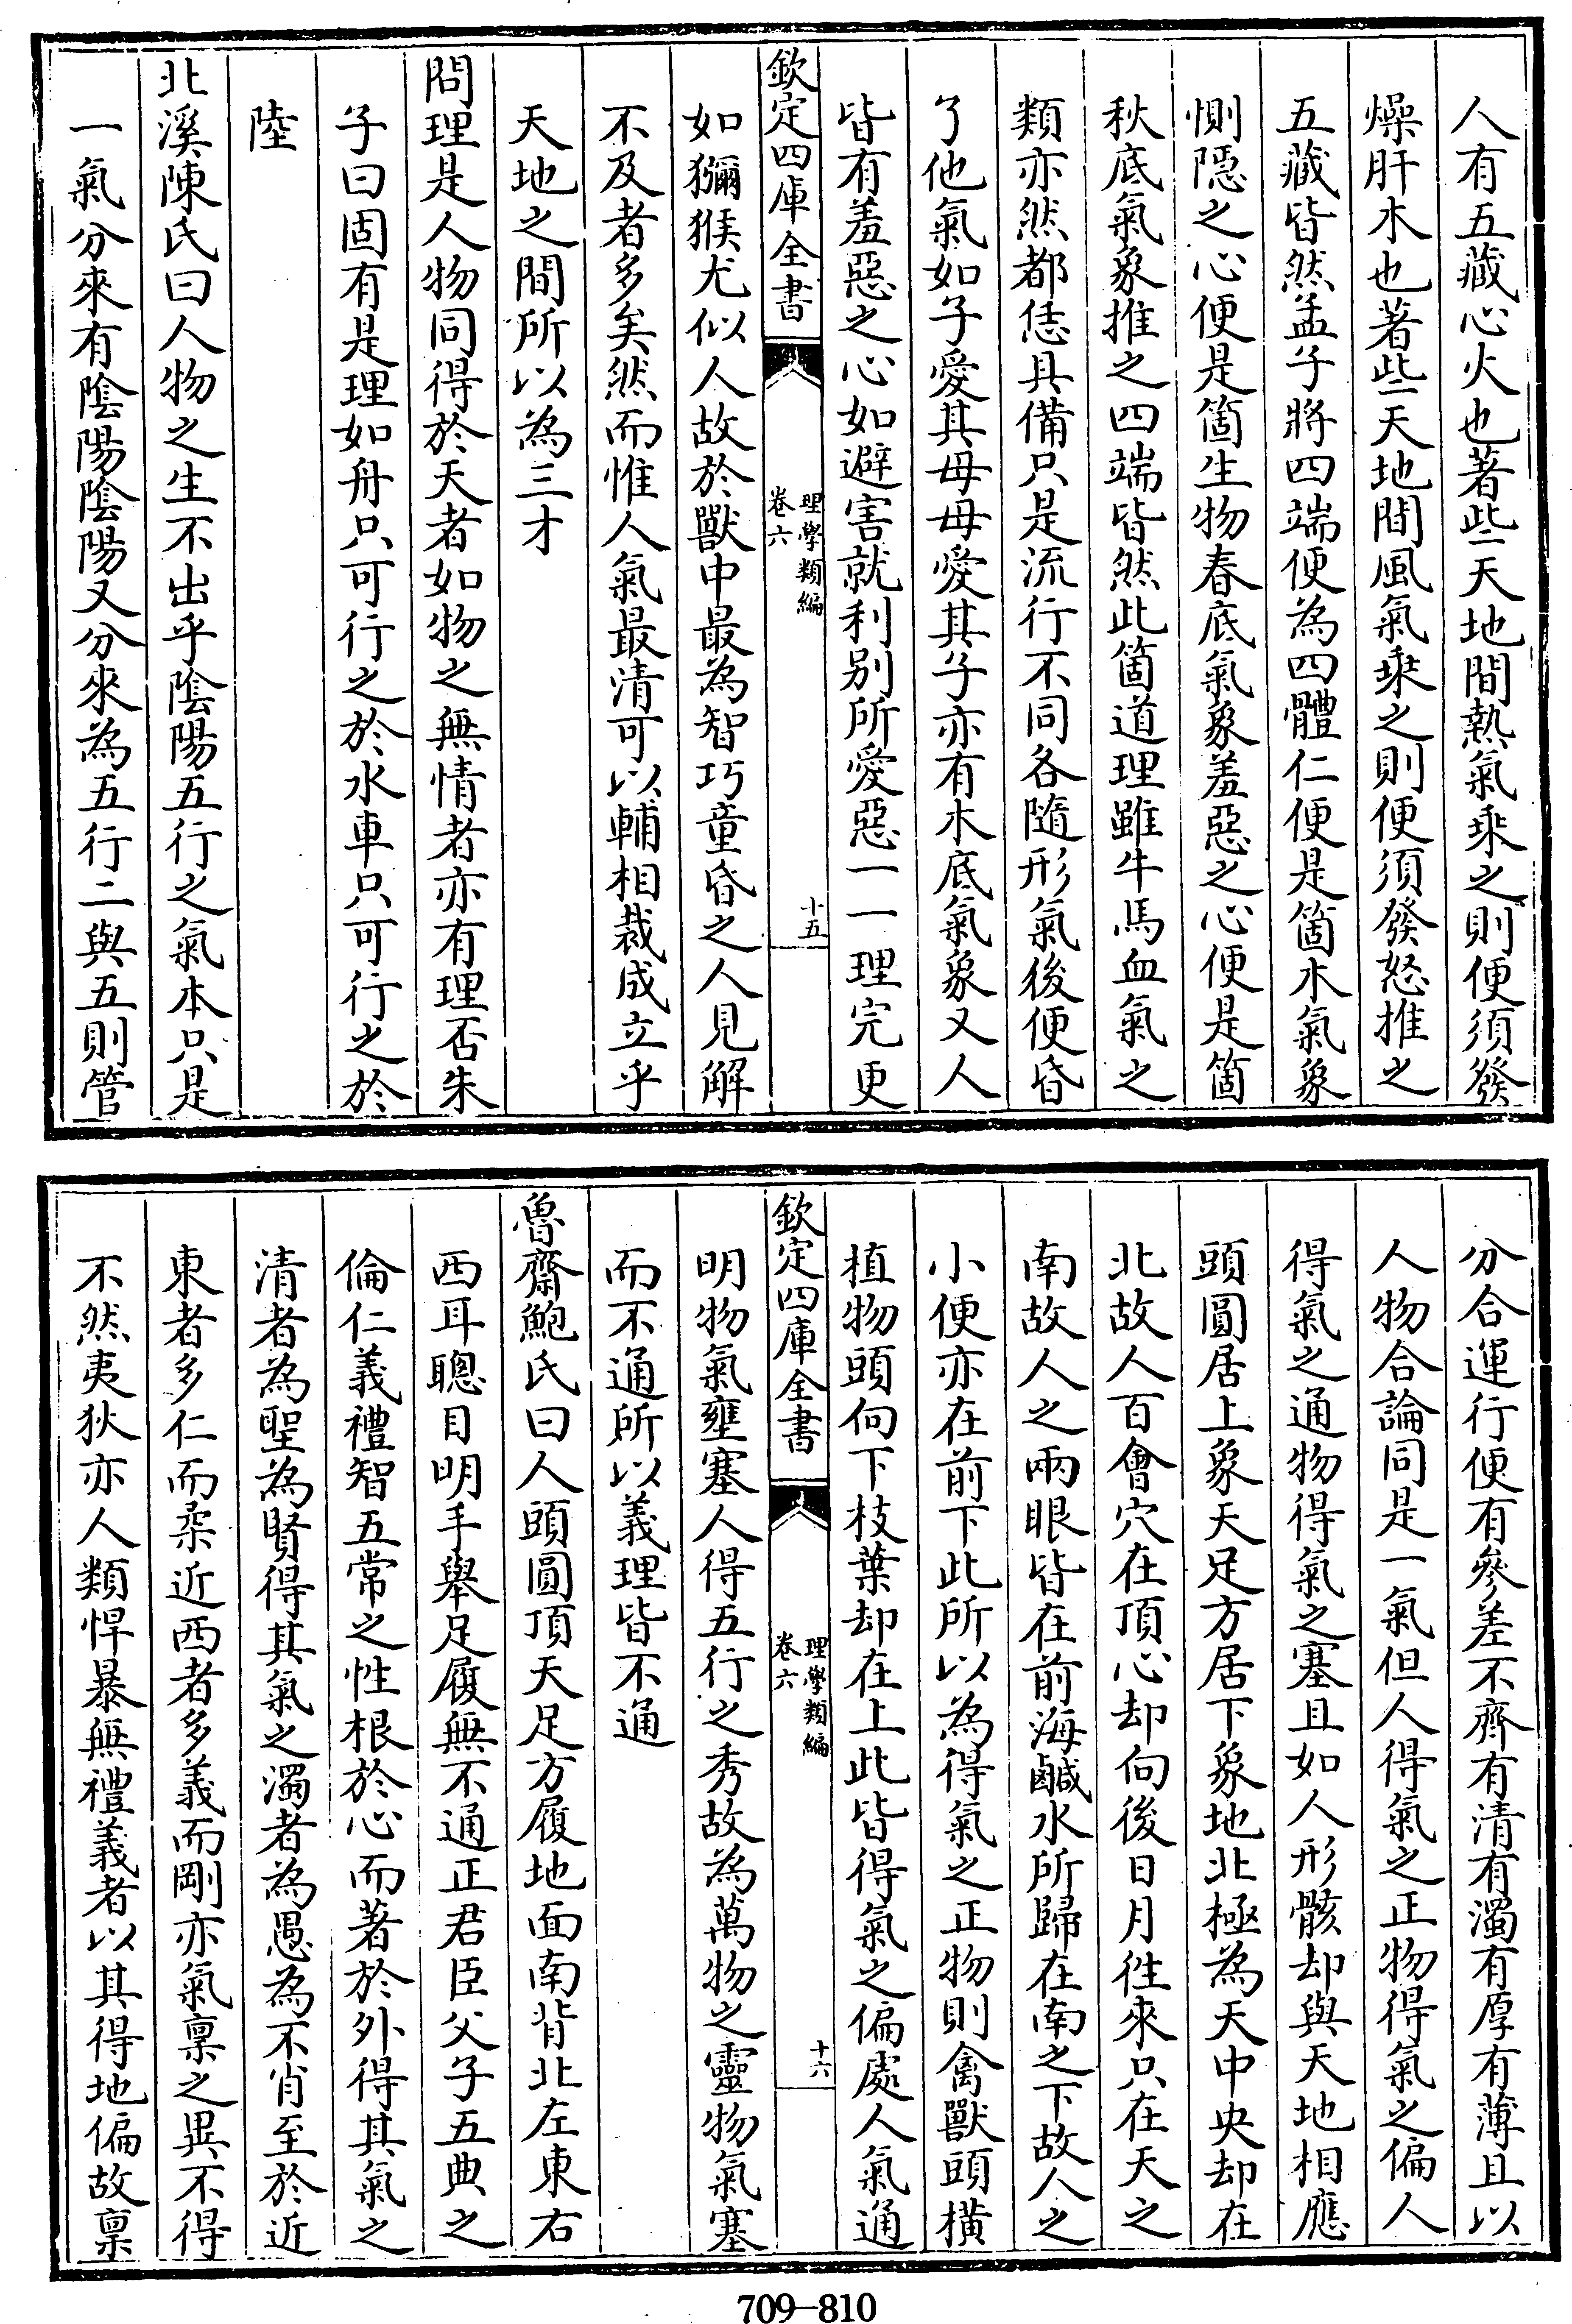 人有五藏心火也著些天地間熱氣乘之則便須發
燥肝木也著些天地間風氣乘之則便須發怒推之
五藏皆然孟子將四端便為四體仁便是箇木氣象
惻隱之心便是箇生物春底氣象羞惡之心便是箇
秋底氣象推之四端皆然此箇道理雖牛馬血氣之
類亦然都恁具備只是流行不同各隨形氣後便昏
了他氣如子愛其母母愛其子亦有木底氣象又人
皆有羞惡之心如避害就利别所愛惡一一理完更
欽定四庫全書
理學類編
卷六
十五
如獼猴尤似人故於獸中最為智巧童昏之人見解
不及者多矣然而惟人氣最清可以輔相裁成立乎
天地之間所以為三才
問理是人物同得於天者如物之無情者亦有理否朱
子曰固有是理如舟只可行之於水車只可行之於
陸
北溪陳氏曰人物之生不出乎陰陽五行之氣本只是
一氣分來有陰陽陰陽又分來為五行二與五則管
分合運行便有參差不齊有清有濁有厚有薄且以
人物合論同是一氣但人得氣之正物得氣之偏人
得氣之通物得氣之塞且如人形骸却與天地相應
頭圓居上象天足方居下象地北極為天中央却在
北故人百會穴在頂心却向後日月徃來只在天之
南故人之兩眼皆在前海鹹水所歸在南之下故人之
小便亦在前下此所以為得氣之正物則禽獸頭橫
植物頭向下枝葉却在上此皆得氣之偏處人氣通
欽定四庫全書
理學類編
卷六
十六
明物氣壅塞人得五行之秀故為萬物之靈物氣塞
而不通所以義理皆不通
魯齋鮑氏曰人頭圓頂天足方履地面南背北左東右
西耳聰目明手舉足履無不通正君臣父子五典之
倫仁義禮智五常之性根於心而著於外得其氣之
清者為聖為賢得其氣之濁者為愚為不肖至於近
東者多仁而柔近西者多義而剛亦氣禀之異不得
不然夷狄亦人類悍暴無禮義者以其得地偏故禀
709—810